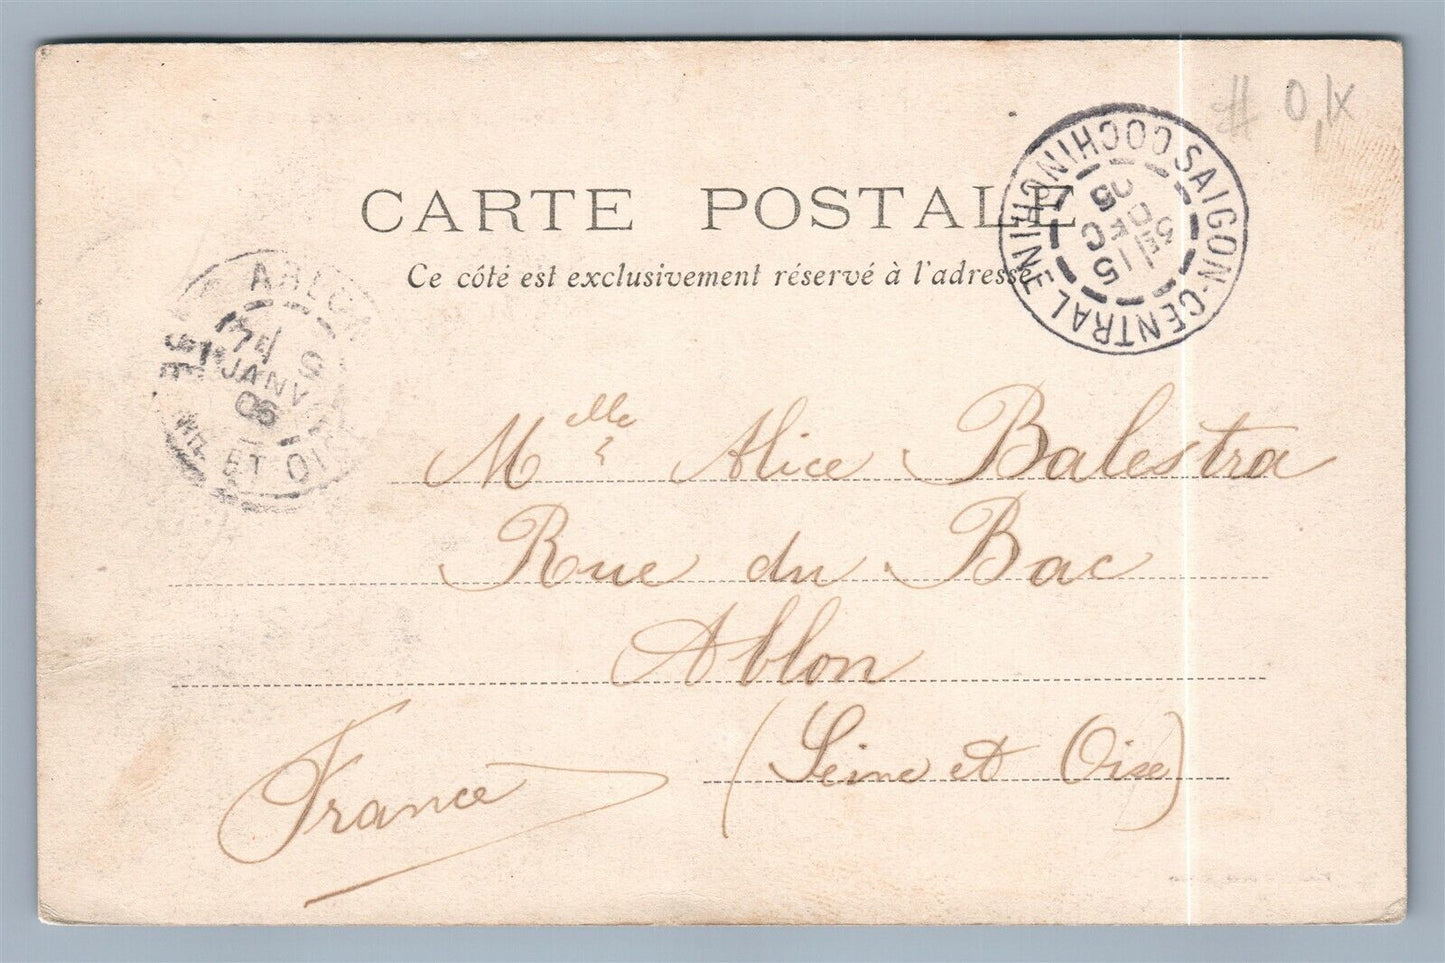 # 0,1X
CARTE POSTALE
Ce côté est exclusivement réservé à l'adresse
SAIGON-CENTRAL COCHINCHINE
15 DEC 05
ABLON
JANV
06
ET OISE
Mlle Alice Balestra
Rue du Bac
Ablon
(Seine et Oise)
France